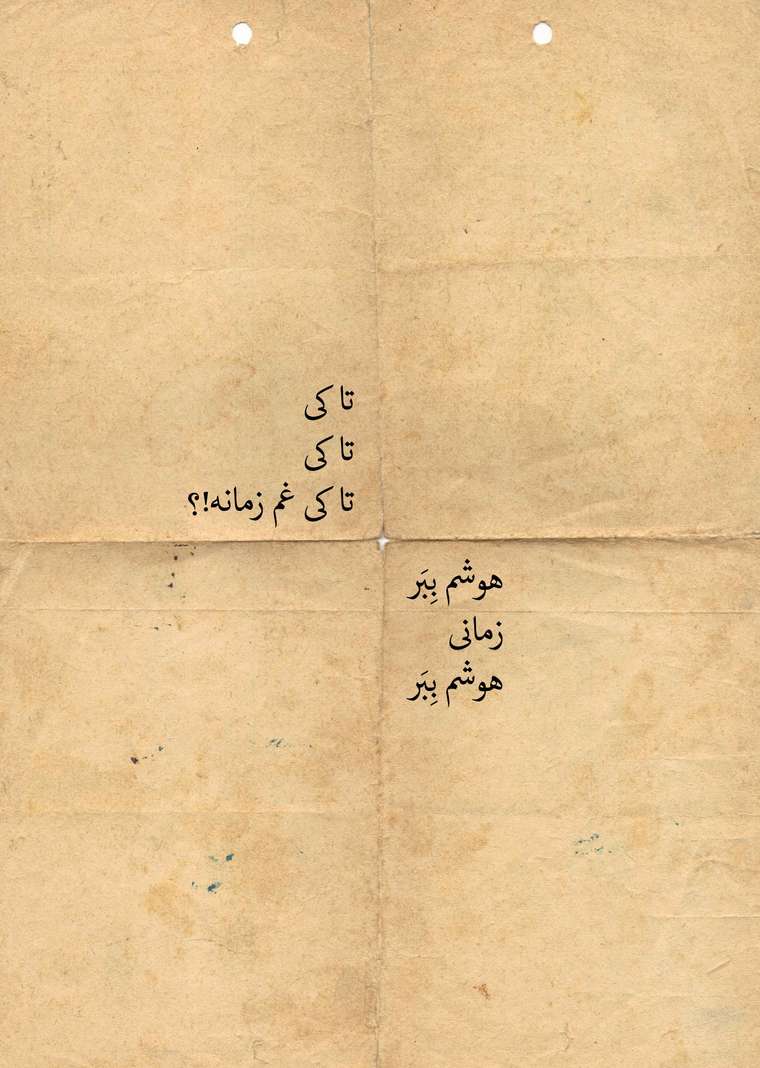 تا کی
تا کی
تا کی غم زمانه!؟
هوشم بِبَر
زمانی
هوشم بِبَر